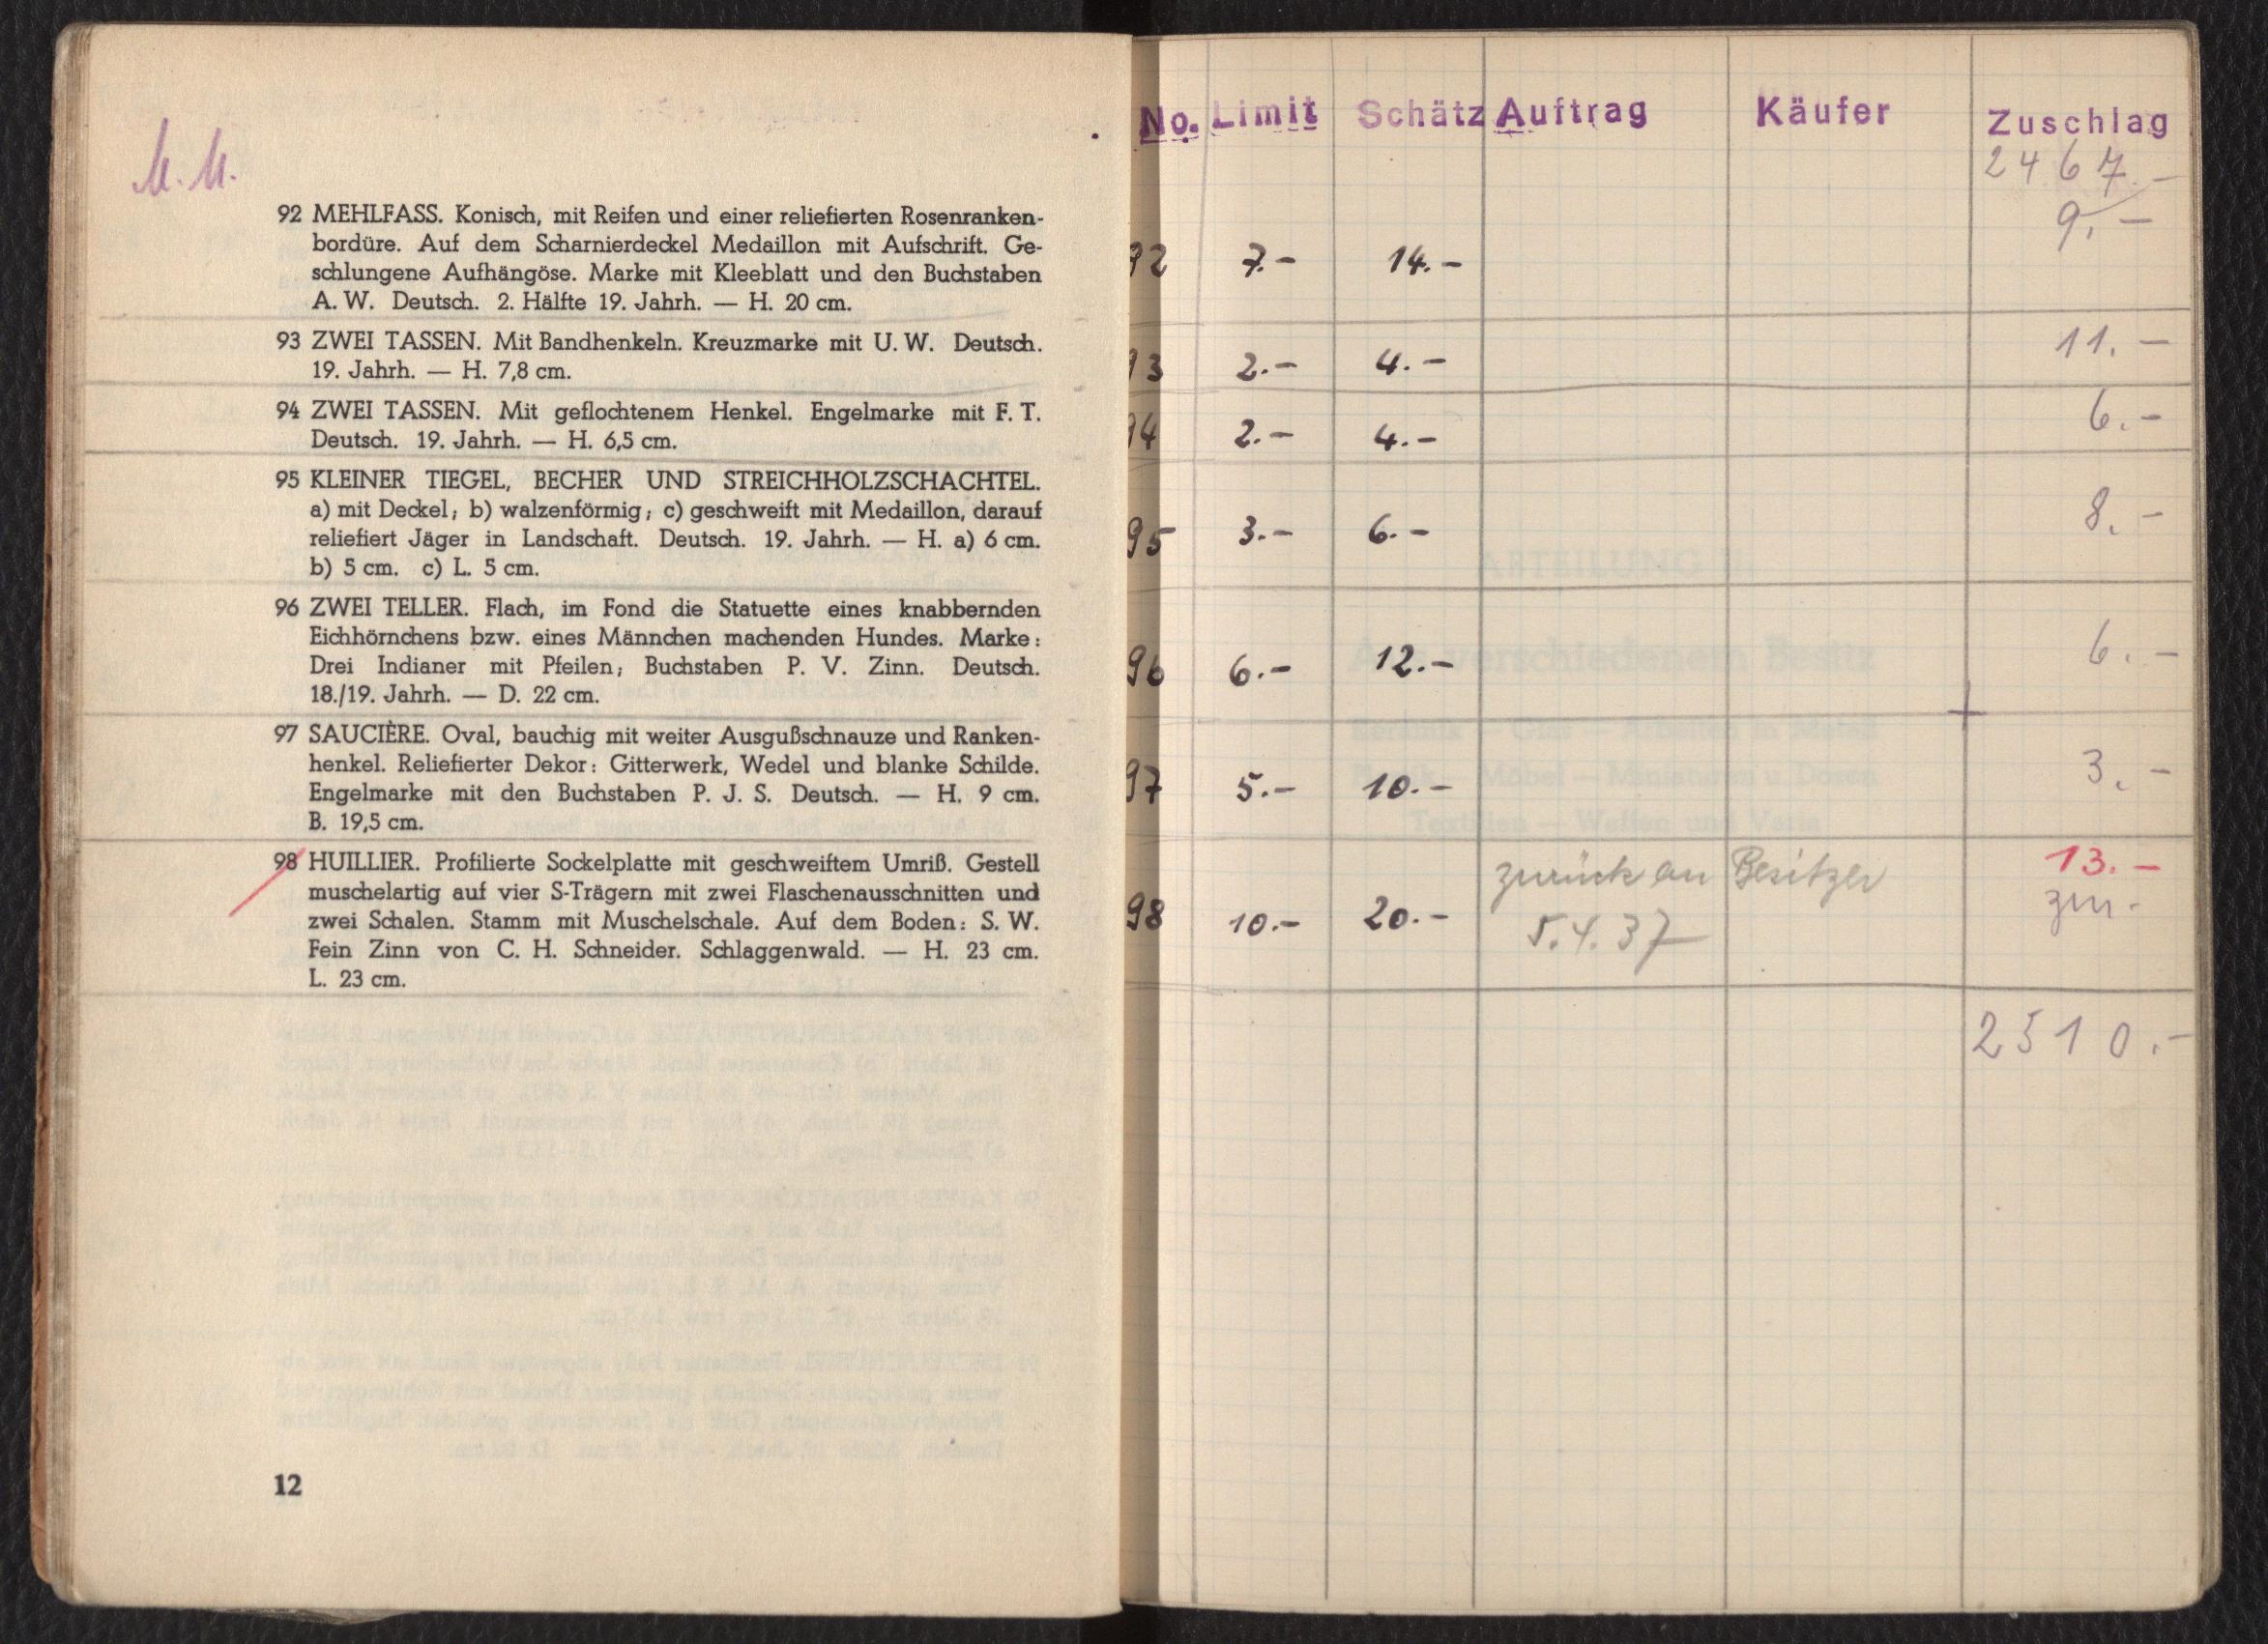 92 MEHLFASS. Konisch, mit Reifen und einer reliefierten Rosenranken-
bordüre. Auf dem Scharnierdeckel Medaillon mit Aufschrift. Ge-
schlungene Aufhängöse. Marke mit Kleeblatt und den Buchstaben
A. W. Deutsch. 2. Hälfte 19. Jahrh. — H. 20 cm.
93 ZWEI TASSEN. Mit Bandhenkeln. Kreuzmarke mit U. W. Deutsch.
19. Jahrh. — H. 7,8 cm.
94 ZWEI TASSEN. Mit geflochtenem Henkel. Engelmarke mit F. T.
Deutsch. 19. Jahrh. — H. 6,5 cm.
95 KLEINER TIEGEL, BECHER UND STREICHHOLZSCHACHTEL.
a) mit Deckel; b) walzenförmig; c) geschweift mit Medaillon, darauf
reliefiert Jäger in Landschaft. Deutsch. 19. Jahrh. — H. a) 6 cm.
b) 5 cm. c) L. 5 cm.
96 ZWEI TELLER. Flach, im Fond die Statuette eines knabbernden
Eichhörnchens bzw. eines Männchen machenden Hundes. Marke:
Drei Indianer mit Pfeilen; Buchstaben P. V. Zinn. Deutsch.
18./19. Jahrh. — D. 22 cm.
97 SAUCIÈRE. Oval, bauchig mit weiter Ausgußschnauze und Ranken-
henkel. Reliefierter Dekor: Gitterwerk, Wedel und blanke Schilde.
Engelmarke mit den Buchstaben P. J. S. Deutsch. — H. 9 cm.
B. 19,5 cm.
98 HUILLIER. Profilierte Sockelplatte mit geschweiftem Umriß. Gestell
muschelartig auf vier S-Trägern mit zwei Flaschenausschnitten und
zwei Schalen. Stamm mit Muschelschale. Auf dem Boden: S. W.
Fein Zinn von C. H. Schneider. Schlaggenwald. — H. 23 cm.
L. 23 cm.
12
No. Limit Schätz Auftrag Käufer Zuschlag
2467.-
92 7.- 14.- 9.-
93 2.- 4.- 11.-
94 2.- 4.- 6.-
95 3.- 6.- 8.-
96 6.- 12.- 6.-
97 5.- 10.- 3.-
98 10.- 20.- zurück an Besitzer 13.-
5.4.37
2510.-